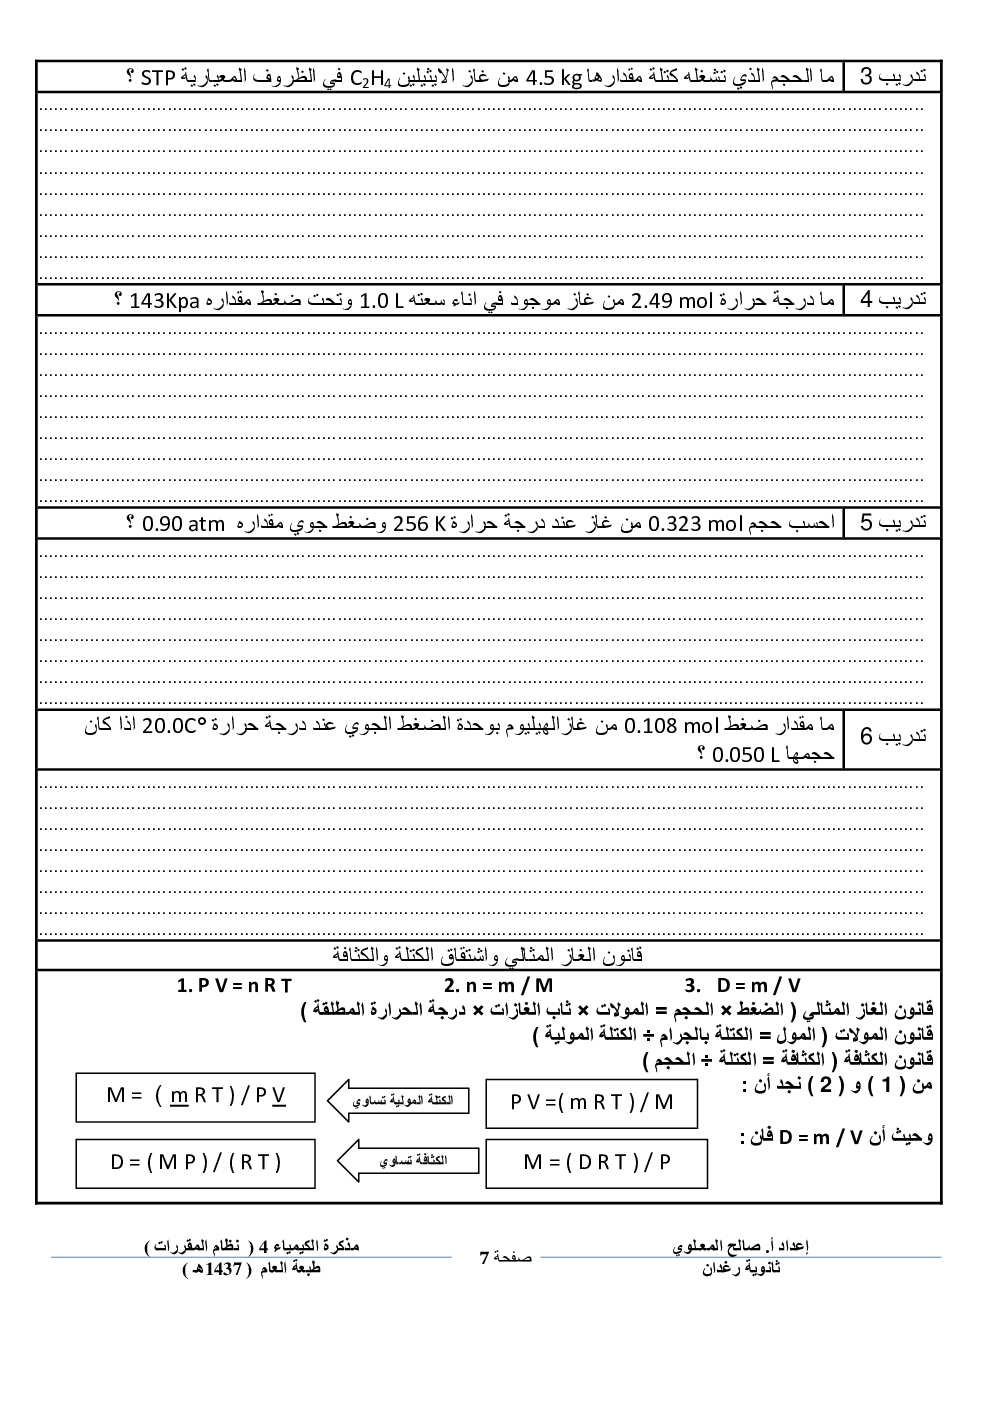 تدريب 3 ما الحجم الذي تشغله كتلة مقدارها 4.5 kg من غاز الايثيلين C₂H₄ في الظروف المعيارية STP ؟
تدريب 4 ما درجة حرارة 2.49 mol من غاز موجود في اناء سعته 1.0 L وتحت ضغط مقداره 143Kpa ؟
تدريب 5 احسب حجم 0.323 mol من غاز عند درجة حرارة 256 K وضغط جوي مقداره 0.90 atm ؟
تدريب 6 ما مقدار ضغط 0.108 mol من غازالهيليوم بوحدة الضغط الجوي عند درجة حرارة 20.0C° اذا كان
حجمها 0.050 L ؟
قانون الغاز المثالي واشتقاق الكتلة والكثافة
1. P V = n R T 2. n = m / M 3. D = m / V
قانون الغاز المثالي ( الضغط × الحجم = المولات × ثاب الغازات × درجة الحرارة المطلقة )
قانون المولات ( المول = الكتلة بالجرام ÷ الكتلة المولية )
قانون الكثافة ( الكثافة = الكتلة ÷ الحجم )
من ( 1 ) و ( 2 ) نجد أن :
P V =( m R T ) / M الكتلة المولية تساوي M = ( m R T ) / P V
وحيث أن D = m / V فان :
M = ( D R T ) / P الكثافة تساوي D = ( M P ) / ( R T )
إعداد أ. صالح المعلوي صفحة 7 مذكرة الكيمياء 4 ( نظام المقررات )
ثانوية رغدان طبعة العام ( 1437هـ )